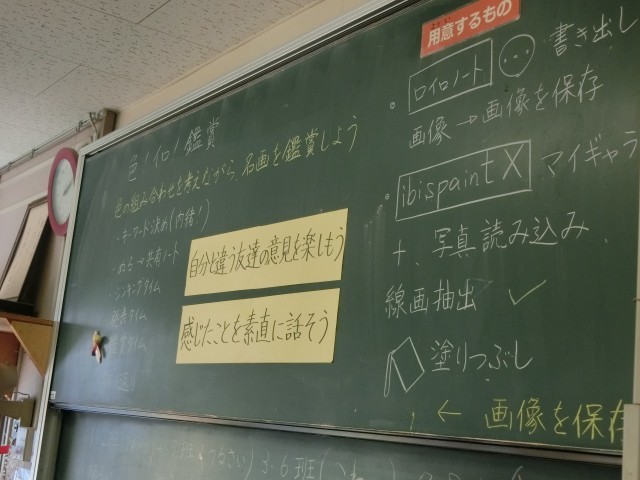 用意するもの
ロイロノート 書き出し
画像→画像を保存
ibispaint X マイギャラ
+、写真読み込み、
線画抽出 ✓
塗りつぶし
← 画像を保存
色!イロ!鑑賞
色の組み合わせを考えながら、名画を鑑賞しよう
・キーワード決め(内緒!)
→共有ノート
シンキングタイム
タイム
タイム
自分と違う友達の意見を楽しもう
感じたことを素直に話そう
3.6班